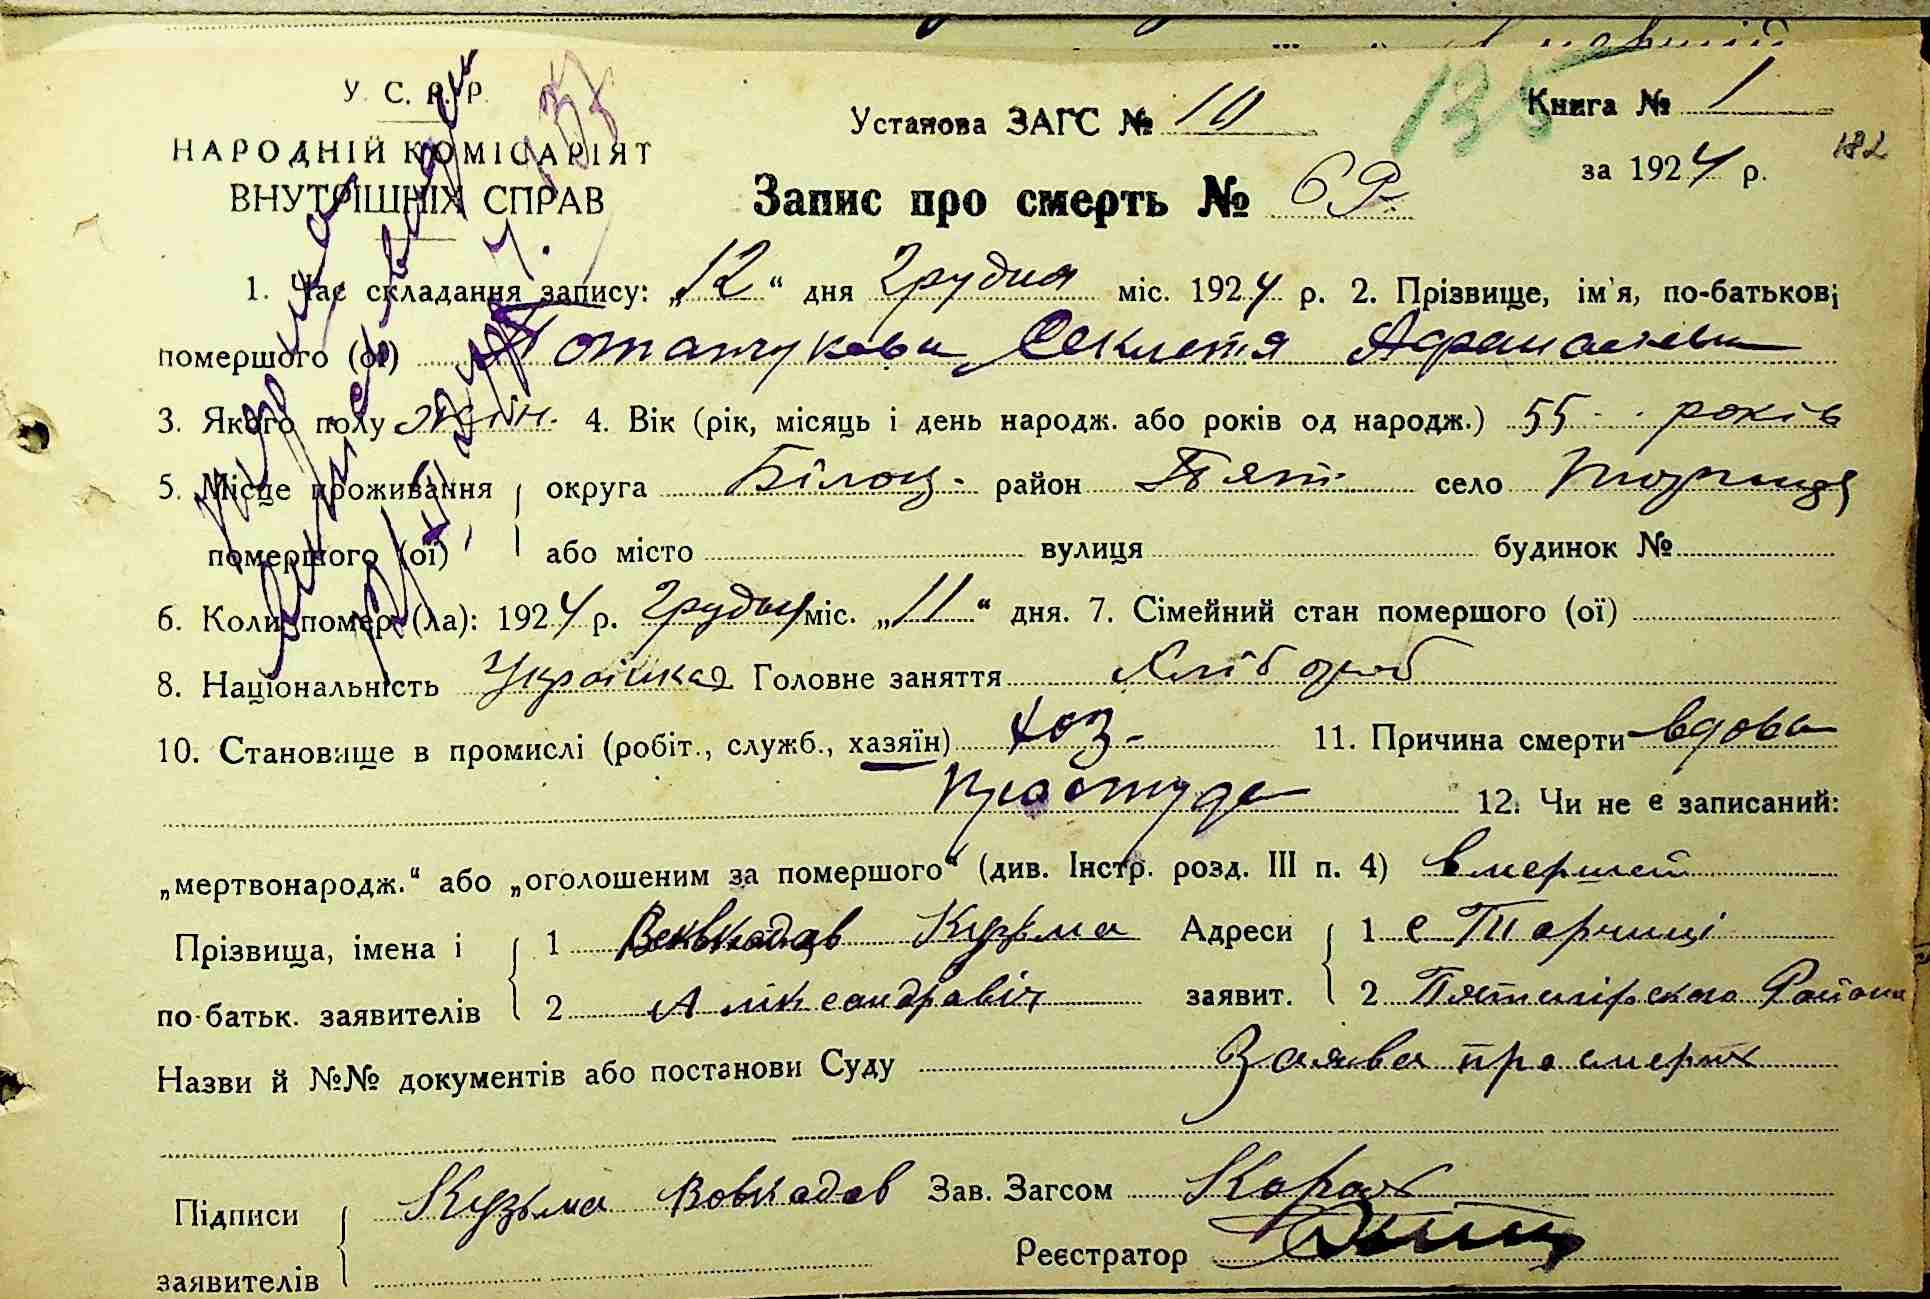 У. С. Р. Р.
НАРОДНІЙ КОМІСАРІЯТ
ВНУТРІШНІХ СПРАВ
Установа ЗАГС № 10
135
Книга № 1
за 1924 р.
182
Запис про смерть № 69
1. Час складання запису: „12“ дня Грудня міс. 1924 р. 2. Прізвище, ім'я, по-батькові
помершого (ої) Секлетя Афанасіевна
3. Якого полу жін. 4. Вік (рік, місяць і день народж. або років од народж.) 55 років
5. Місце проживання округа Білоц. район Пят. село Торчиця
помершого (ої) або місто вулиця будинок №
6. Коли помер (ла): 1924 р. Грудня міс. „11“ дня. 7. Сімейний стан помершого (ої)
8. Національність Українка Головне заняття Хлібороб
10. Становище в промислі (робіт., служб., хазяїн) хоз. 11. Причина смерти вдова
Простуда 12. Чи не є записаний:
„мертвонародж.“ або „оголошеним за помершого“ (див. Інстр. розд. III п. 4) вмершей
Прізвища, імена і 1 Кузьма Адреси 1 с Торчиці
по-батьк. заявителів 2 Аліксандравіч заявит. 2 Пятигірского Района
Назви й №№ документів або постанови Суду Заява про смерть
Підписи Кузьма Вовкадав Зав. Загсом
Реєстратор
заявителів